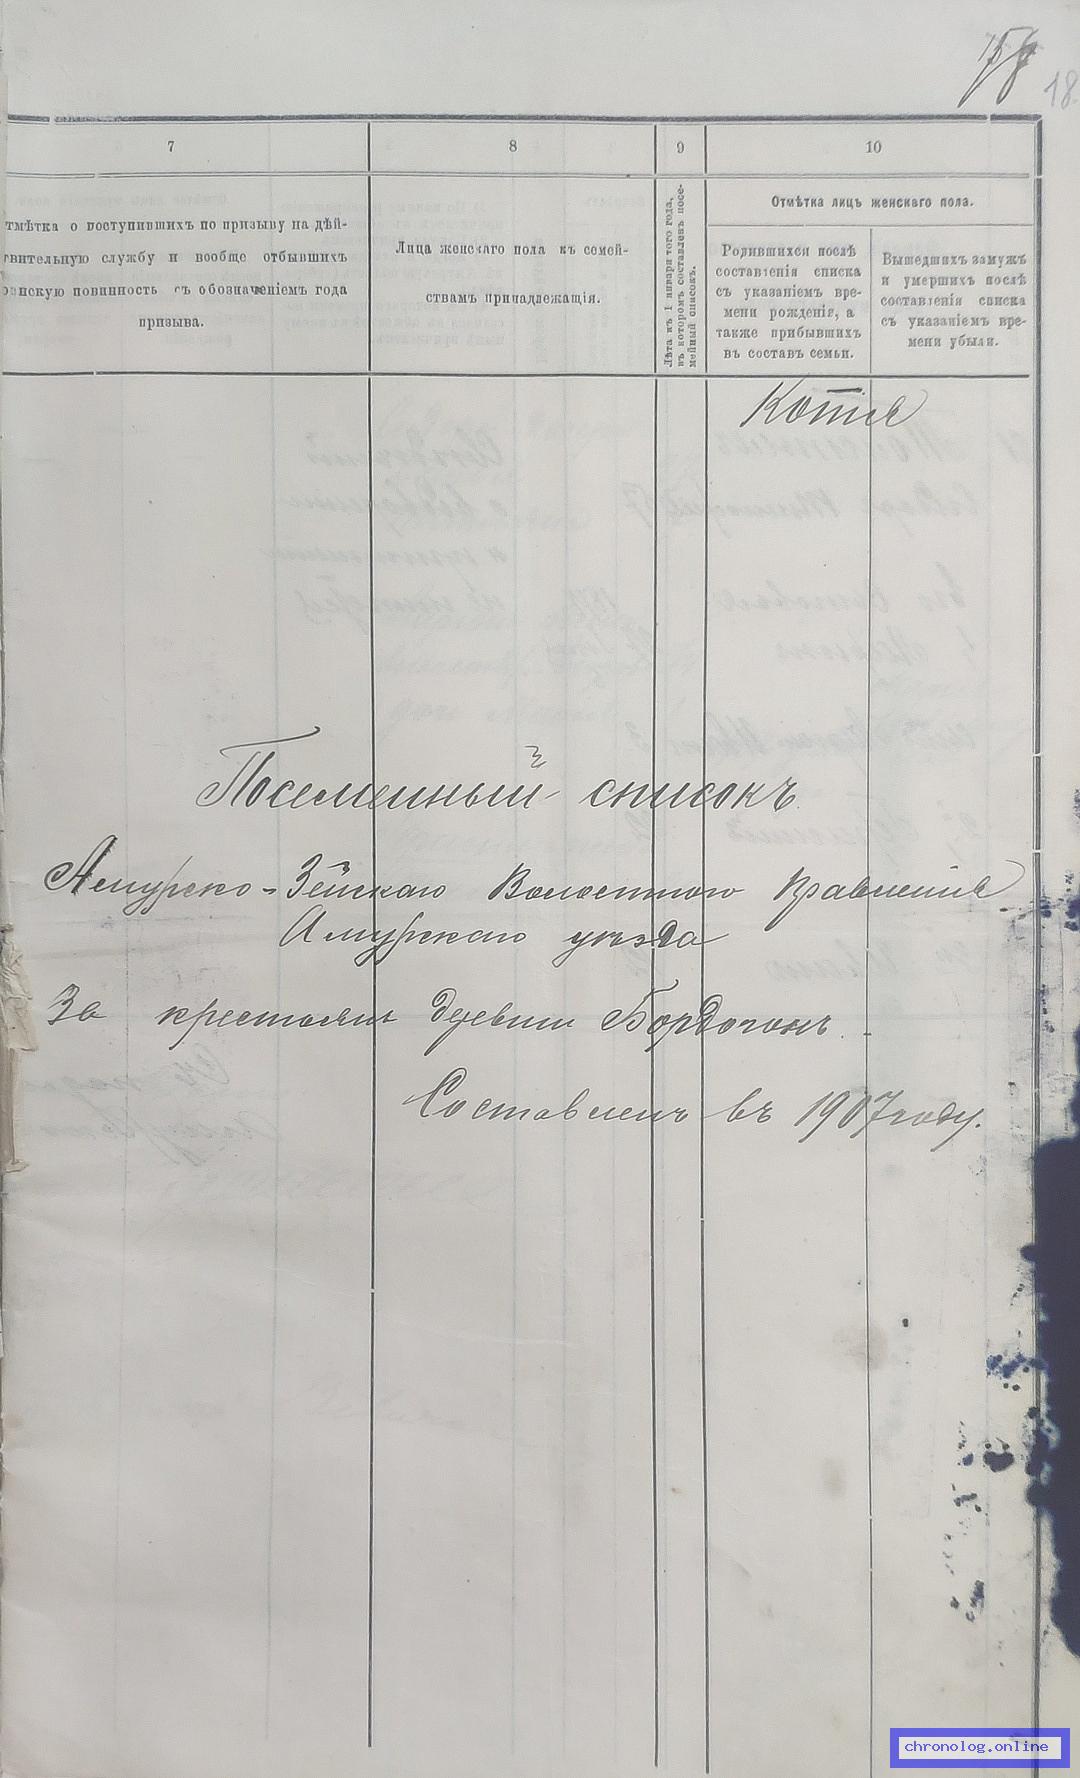 18
7
8
9
10
тмѣтка о поступившихъ по призыву на дѣй-
твительную службу и вообще отбывшихъ
оинскую повинность съ обозначеніемъ года
призыва.
Лица женскаго пола къ семей-
ствамъ принадлежащія.
Лѣта къ 1 января того года,
въ которомъ составленъ посе-
мейный списокъ.
Отмѣтка лицъ женскаго пола.
Родившихся послѣ
составленія списка
съ указаніемъ вре-
мени рожденія, а
также прибывшихъ
въ составъ семьи.
Вышедшихъ замужъ
и умершихъ послѣ
составленія списка
съ указаніемъ вре-
мени убыли.
Копія
Посемейный списокъ
Амурско-Зейскаго Волостного Правленія
Амурскаго уѣзда
За крестьянъ деревни Бордогонъ.
Составленъ въ 1907 году.
chronolog.online